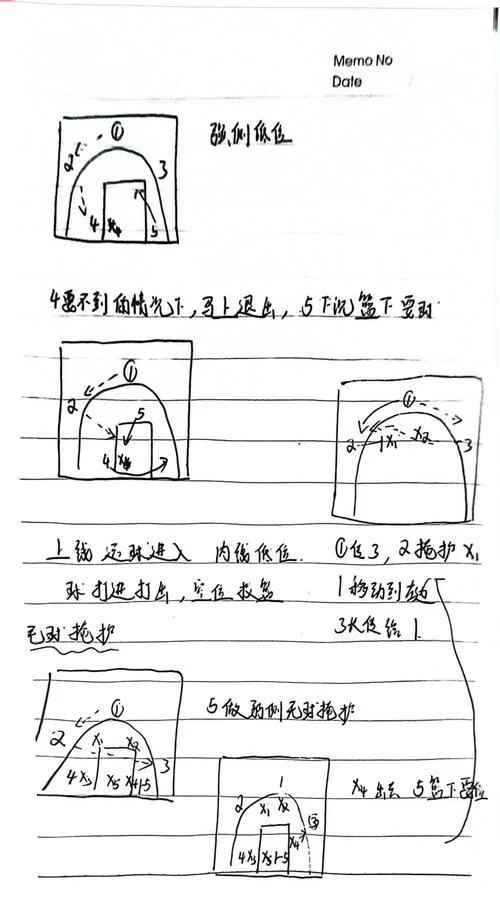 Memo No
Date
强侧低位
① 2 3 4 X4 5
4要不到的情况下,马上退出,5下沉篮下要球
① 2 5 4 X4
① 2 1 X1 X2 3
上线运球进入 内线低位.
球打进打出,空位投篮
①传3,2掩护X1
1移动到
3长传给1.
无球掩护
① 2 X1 X2 3 4 X3 X5 X4 5
5做弱侧无球掩护
1 2 X1 X2 ③ X4 4 X3 X5 5
X4出去 5篮下要位